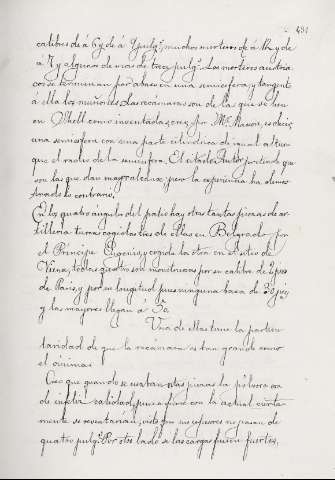 431
calibres de á 6 y de á 9 pulg.ˢ muchos morteros de á 12 y de
á 7 y algunos de mas de trece pulg.ˢ Los morteros austria
cos se terminan por abaxo en una semiesfera, y tangente
á ella los muñones. Las recamaras son de las que se leen
en Dhell como inventadas por Mr.
una semiesfera con una parte cilindrica de igual altura
que el radio de la semiesfera. El citado Autor pretende que
son las que dan mayor alcance, pero la experiencia ha demos
trado lo contrario.
En los quatro angulos del patio hay otras tantas piezas de ar-
tilleria turca cogidas tres de ellas en Belgrado por
el Principe Eugenio, y cogida la otra en el sitio de
Viena, todas quatro son monstruosas por su calibre de 2 pies
de Paris, y por su longitud pues ninguna baxa de
y las mayores llegan á 30.
Una de ellas tiene la particu
laridad de que la recámara es tan grande como
el ánima.
Creo que quando se usaban estas piezas la pólvora era
de infeliz calidad, pues a
mente se reventarian, visto que sus espesores no pasan de
quatro pulg.ˢ Por otro lado si las cargas fuesen fuertes,